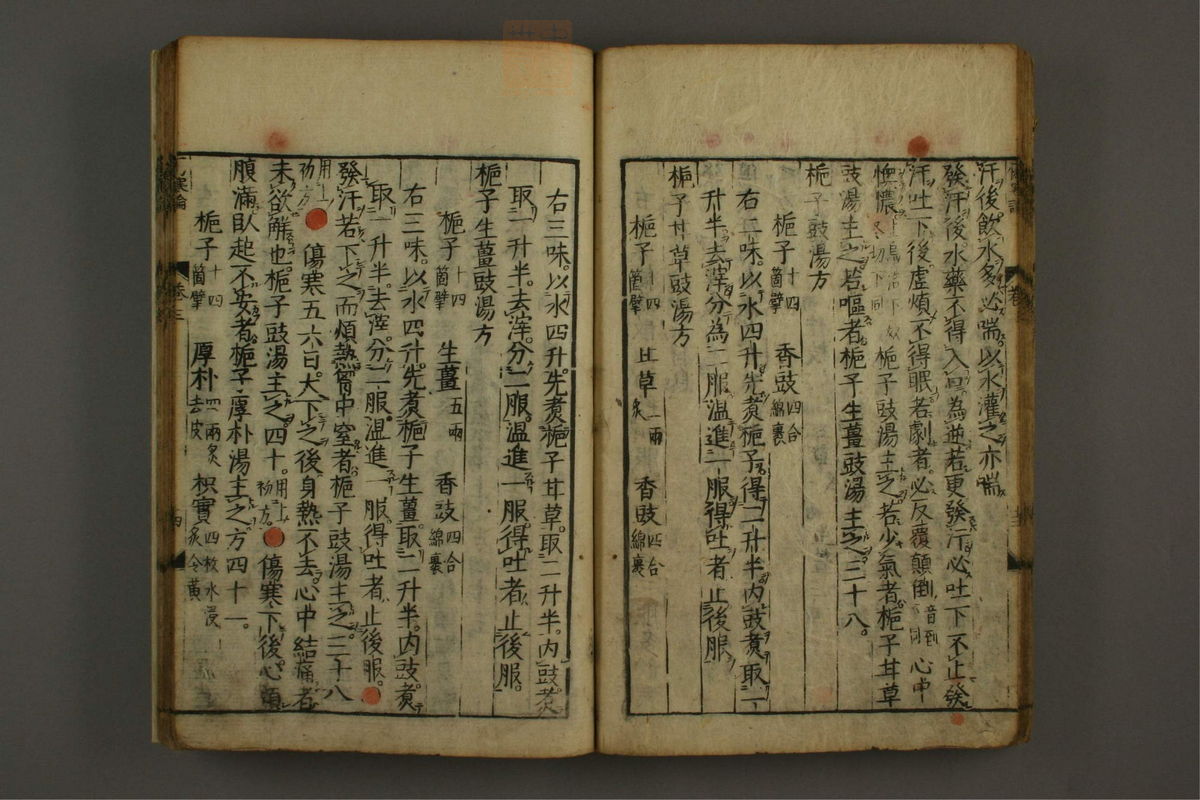 汗後飲水多必喘以水灌之亦喘
發汗後水藥不得入口為逆若更發汗必吐下不止發
汗吐下後虛煩不得眠若劇者必反覆顛倒音到下同心中
懊憹梔子豉湯主之若少氣者梔子甘草
豉湯主之若嘔者梔子生薑豉湯主之三十八。
梔子豉湯方
梔子十四箇擘 香豉四合綿裹
右二味。以水四升。先煮梔子得二升半內豉煮取一
升半。去滓分為二服溫進一服得吐者止後服
梔子甘草豉湯方
梔子十四箇擘 甘草二兩炙 香豉四合綿裹
右三味。以水四升。先煮梔子甘草。取二升半。內豉。煮
取一升半。去滓。分二服。溫進一服。得吐者止後服。
梔子生薑豉湯方
梔子十四箇擘 生薑五兩 香豉四合綿裹
右三味。以水四升。先煮梔子生薑。取二升半。內豉。煮
取一升半。去滓。分二服溫進一服得吐者止後服。
發汗若下之而煩熱胷中窒者梔子豉湯主之。三十八
用上初方 傷寒五六日大下之後身熱不去心中結痛者
未欲解也。梔子豉湯主之四十。用上初方。傷寒下後心煩
腹滿臥起不安者梔子厚朴湯主之方四十一。
梔子十四箇擘 厚朴四兩炙去皮 枳實四枚水浸炙令黃
傷寒論
卷三